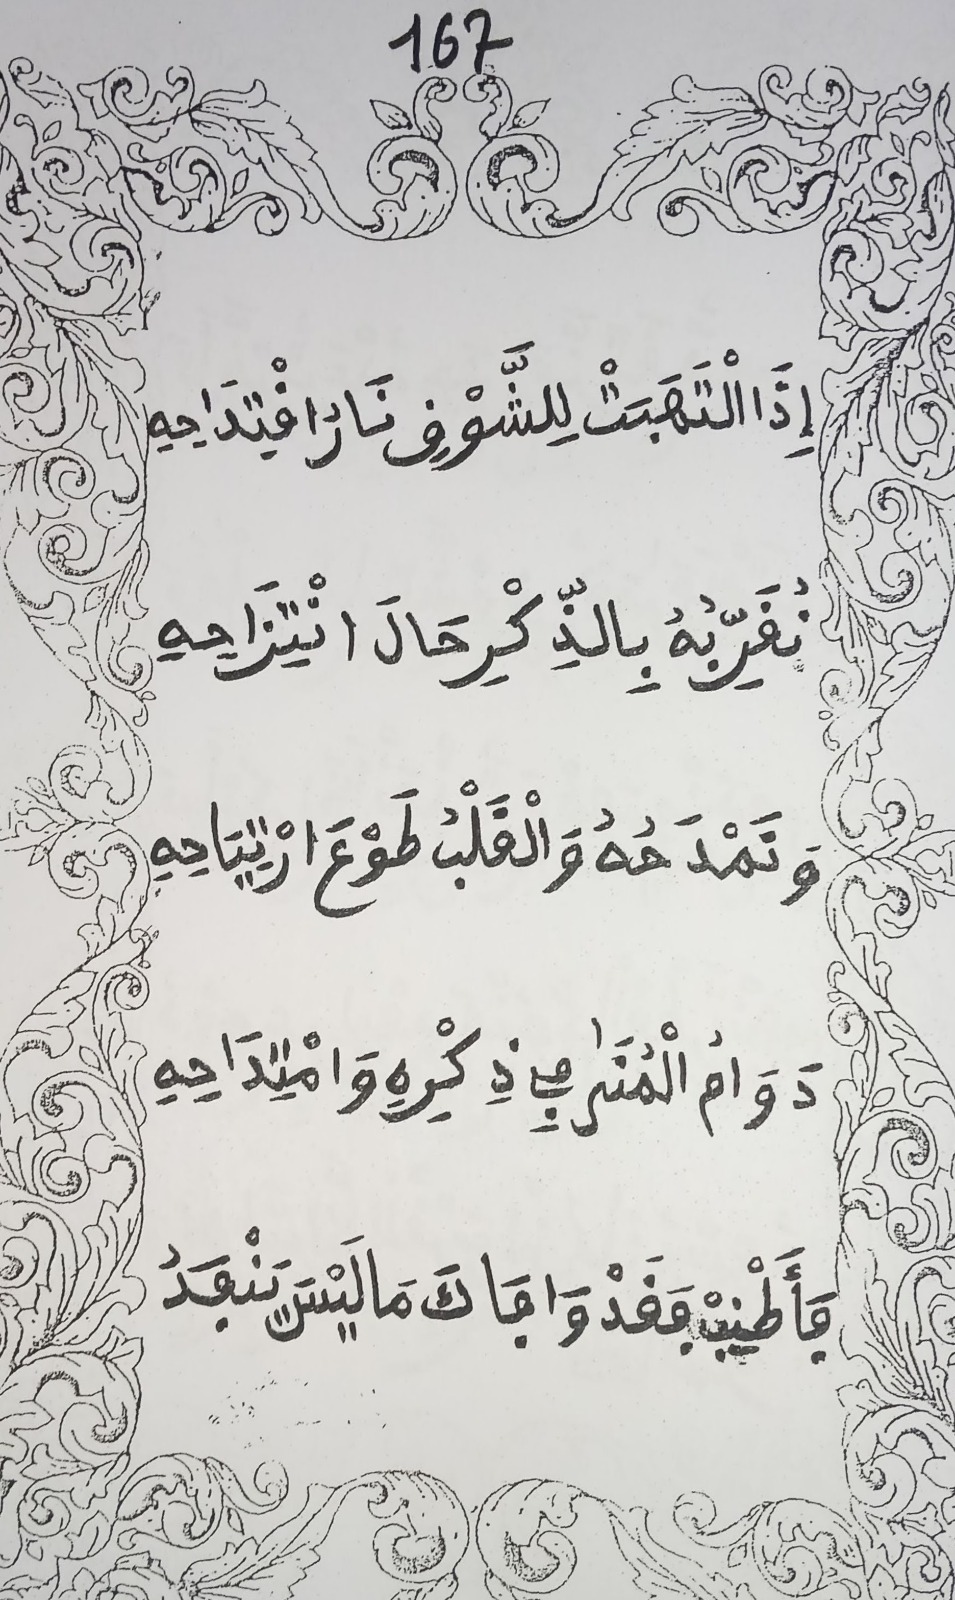 167
إِذَا الْتَهَبَتْ لِلشَّوْقِ نَارُ اقْتِدَاحِهِ
نُقَرِّبُهُ بِالذِّكْرِ حَالَ انْتِزَاحِهِ
وَنَمْدَحُهُ وَالْقَلْبُ طَوْعَ ارْتِيَاحِهِ
دَوَامُ الْمُنَى فِي ذِكْرِهِ وَامْتِدَاحِهِ
فَأَطْنِبْ فَقَدْ وَافَاكَ مَا لَيْسَ يَنْفَدُ